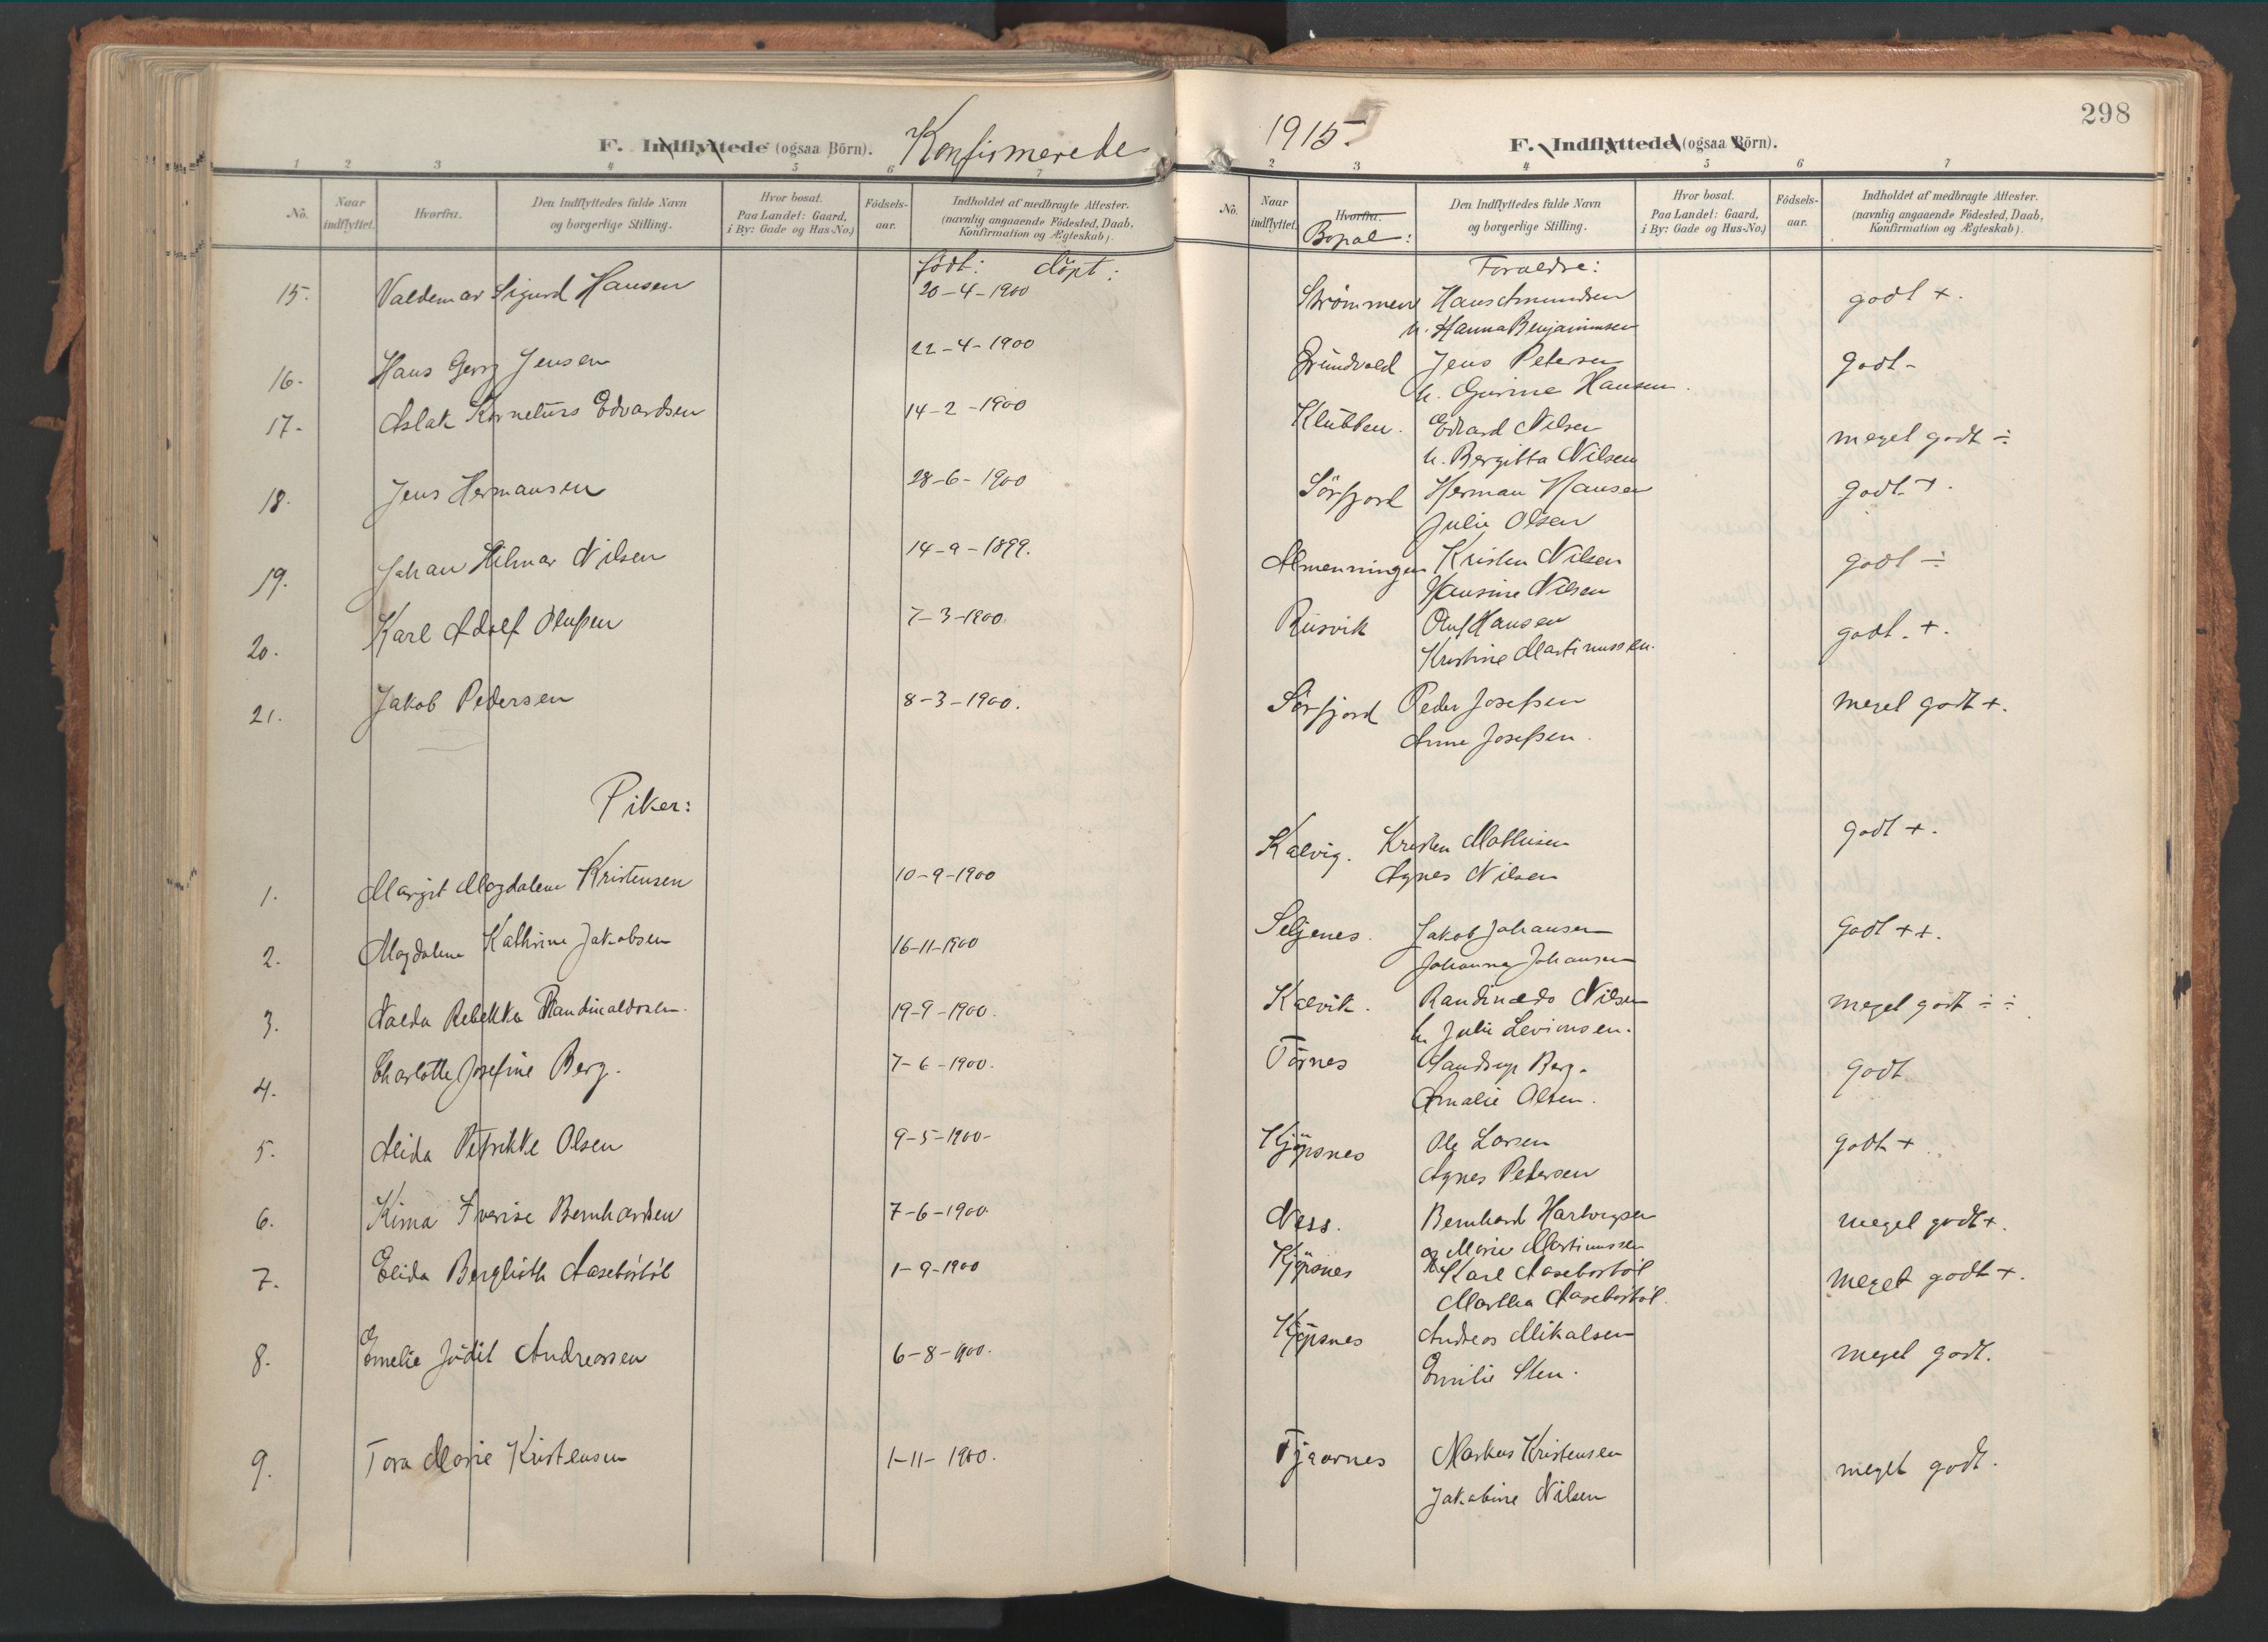 F. Indflyttede (ogsaa Börn). Konfirmerede
1 2 3 4 5 6 7
No. Naar indflyttet. Hvorfra. Den Indflyttedes fulde Navn og borgerlige Stilling. Hvor bosat. Paa Landet: Gaard, i By: Gade og Hus-No.) Födsels-aar. Indholdet af medbragte Attester. (navnlig angaaende Födested, Daab, Konfirmation og Ægteskab).
født: döpt:
15. Valdemar Sigurd Hansen 20-4-1900
16. Hans Georg Jensen 22-4-1900
17. Aslak Korneliüs Edvardsen 14-2-1900
18. Jens Hermansen 28-6-1900
19. Johan Hilmar Nilsen 14-9-1899.
20. Karl Adolf Olufsen 7-3-1900
21. Jakob Pedersen 8-3-1900.
Piker:
1. Margit Magdalene Kristensen 10-9-1900
2. Magdalene Kathrine Jakobsen 16-11-1900
3. Rebekka Randinaldosen. 19-9-1900.
4. Charlotte Josefine Berg. 7-6-1900.
5. Alida Petrikke Olsen 9-5-1900-
6. Kima Iverise Bernhardsen 7-6-1900
7. Elida Bergliöth Aasebøstöl 1-9-1900
8. Emelie Jüdit Andreassen 6-8-1900.
9. Tora Marie Kristensen 1-11-1900.
1915.
298
F. Indflyttede (ogsaa Börn).
2 3 4 5 6 7
No. Naar indflyttet. Hvorfra. Den Indflyttedes fulde Navn og borgerlige Stilling. Hvor bosat. Paa Landet: Gaard, i By: Gade og Hus-No.) Födsels-aar. Indholdet af medbragte Attester. (navnlig angaaende Födested, Daab, Konfirmation og Ægteskab).
Bopæl:
Forældre:
Strømmen Hans Amundsen godt +.
h. Hanna Benjaminsen
Gründvold Jens Petersen godt-
h. Gurine Hansen.
Klübben. Edvard Nilsen
meget godt ÷
h. Bergitta Nilsen
Sörfjord Herman Hansen godt +.
Julie Olsen
Almenningen Kristen Nilsen godt ÷
Hansine Nilsen
Rüsvik Oluf Hansen godt. +.
Kristine Martinussen.
Sörfjord Peder Josefsen meget godt +.
Anne Josefsen.
Kalvig. Kristen Mathisen godt +.
Agnes Nilsen
Seljenes. Jakob Johansen godt ++.
Johanna Johansen
Kalvik. Randinaldo Nilsen meget godt ÷ ÷
h. Julie Levionsen.
Törnes Berg. godt
Amalie Olsen.
Kjöpsnes Ole Larsen godt +
Agnes Petersen
Ness. Bernhard Hartvigsen meget godt +.
og Marie Martinussen
Kjöpsnes Karl Aasebøstöl meget godt +.
Martha Aasebøstöl.
Kjöpsnes Andreas Mikalsen meget godt.
Emilie Sten.
Tjaarnes Markus Kristensen meget godt.
Jakobine Nilsen